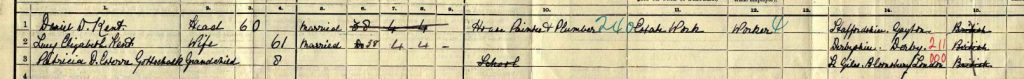 10. 11. 12. 13. 14. 15.
1 Daniel D. Kent Head 60 Married 38 4 4 – House Painter & Plumber 240 Estate Work Worker Staffordshire Gayton British
2 Lucy Elizabeth Kent Wife 61 Married 38 4 4 – Derbyshire Derby 211 British
3 Patricia D. Gottschalk Grandchild 8 School St Giles Bloomsbury London 000 British
4